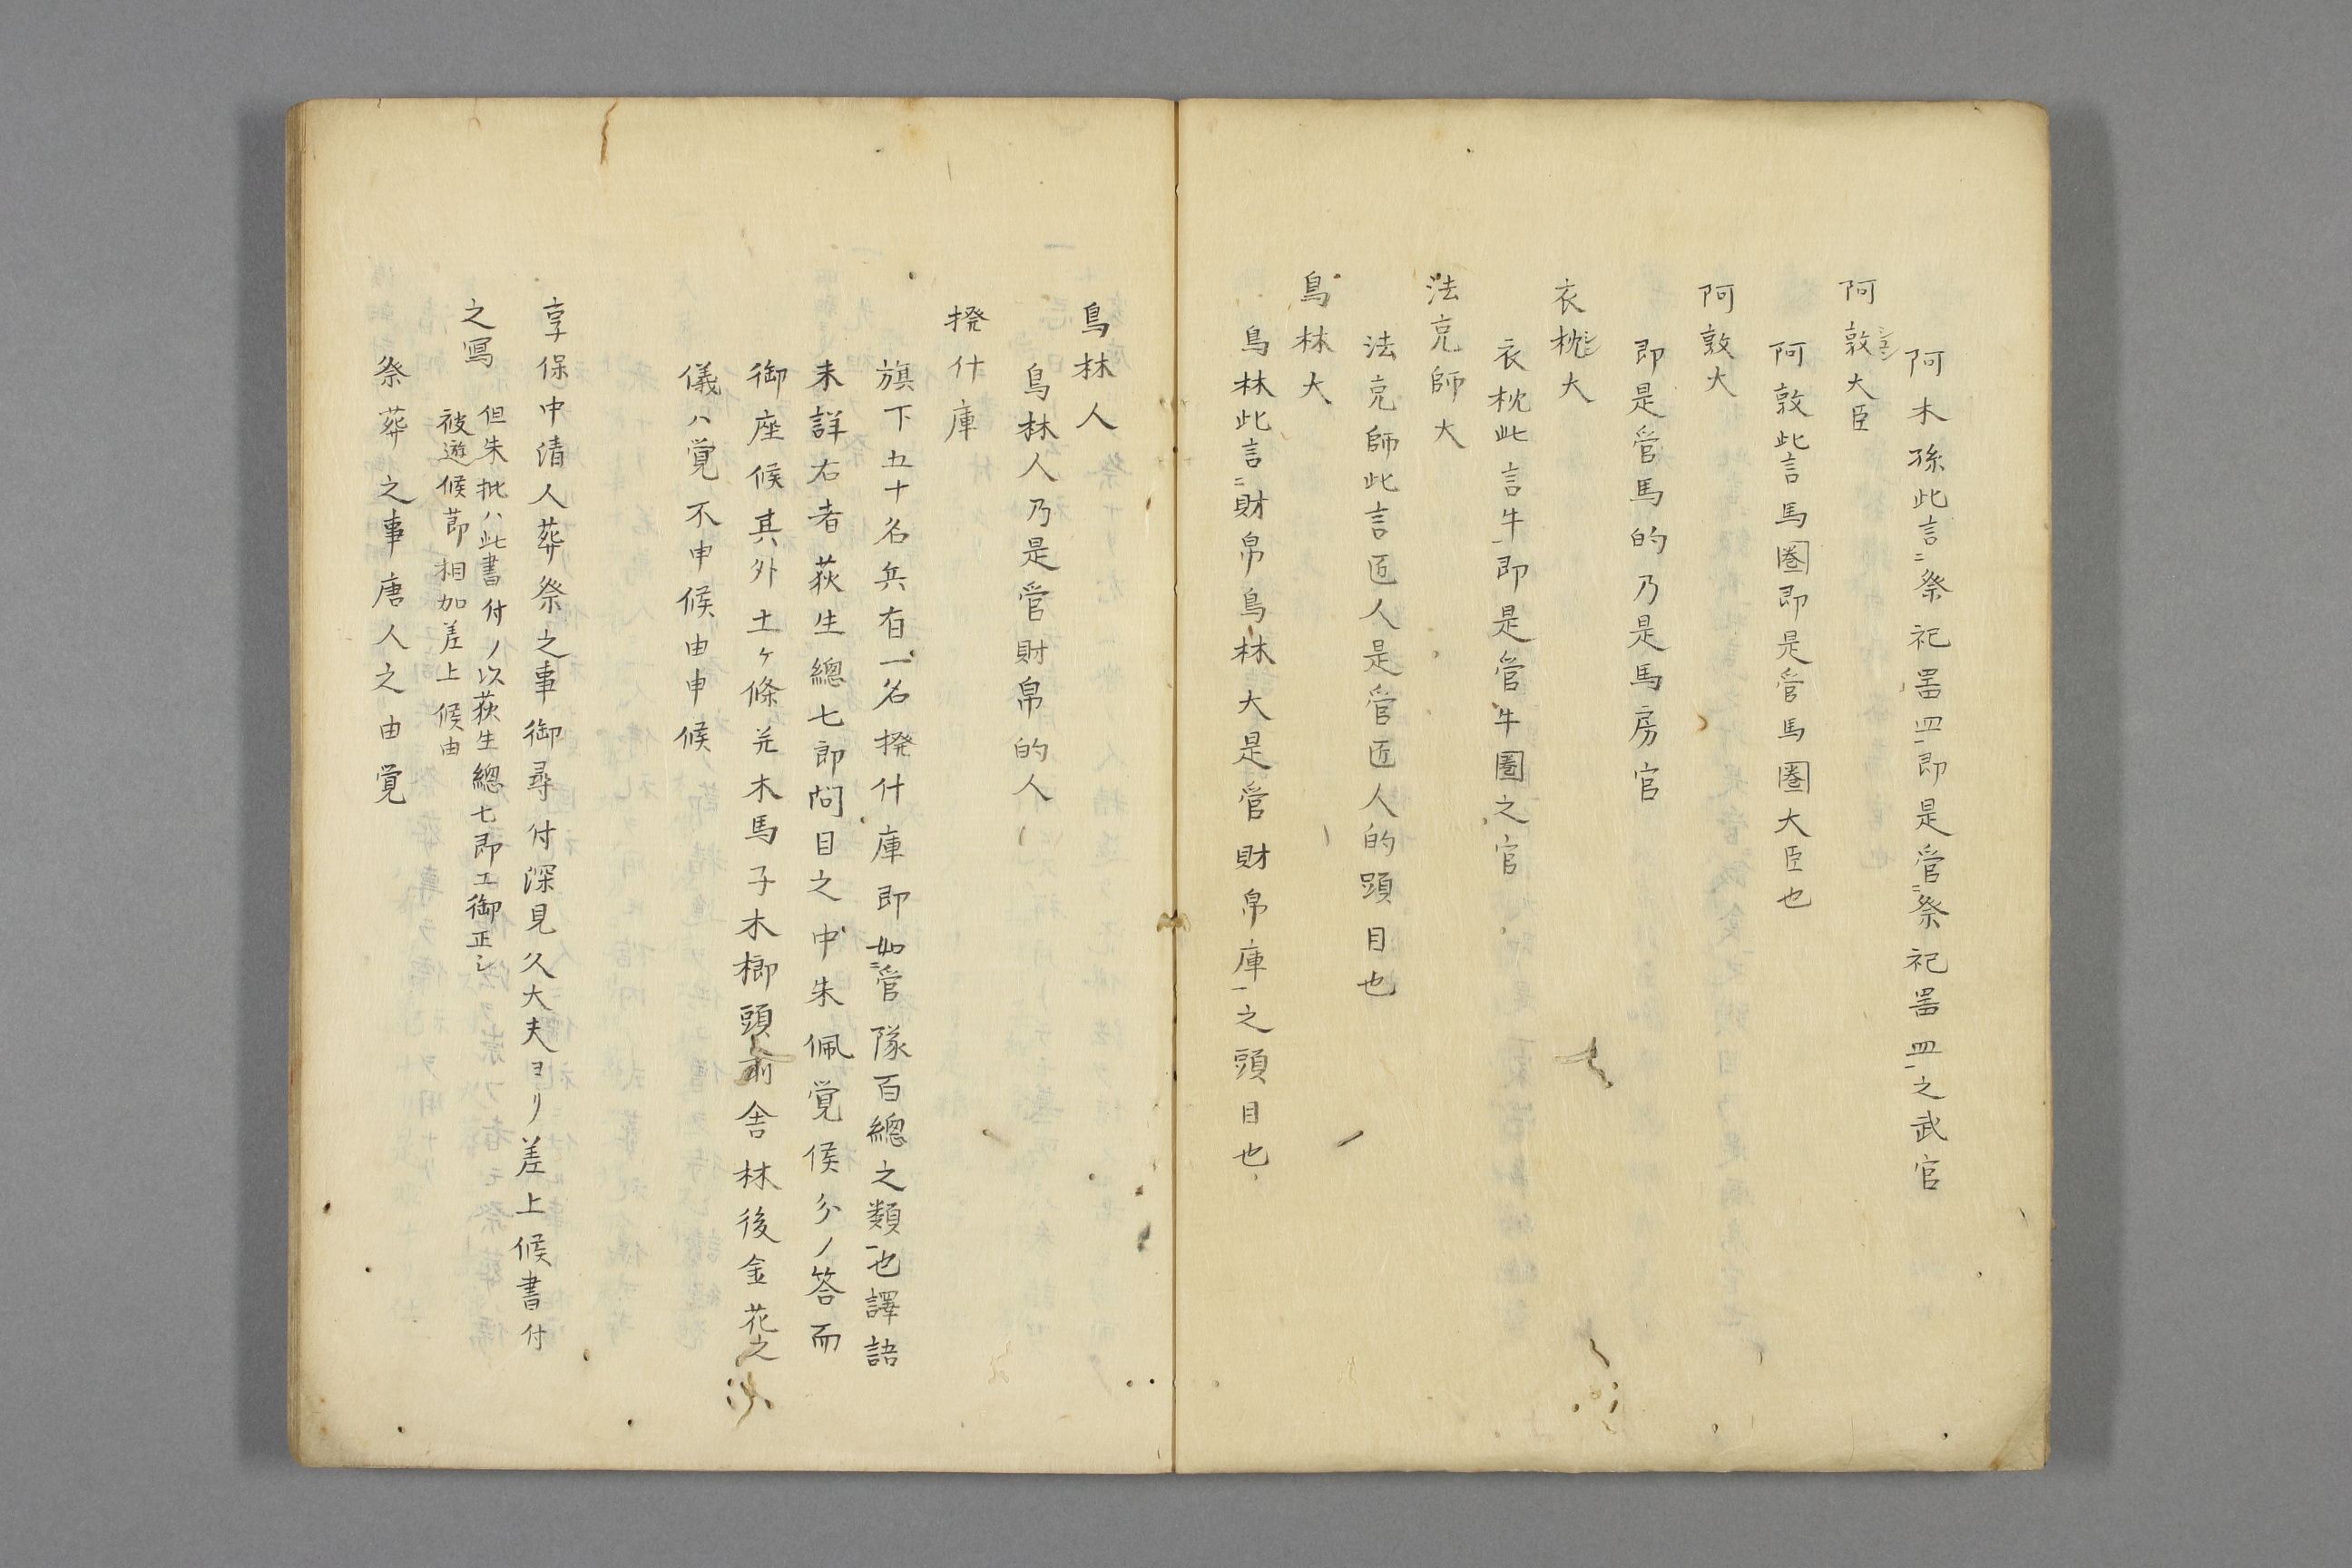 阿木孫此言ニ祭祀噐皿一即是管ニ祭祀噐皿一之武官
阿敦大臣
阿敦此言馬圏即是管馬圏大臣也
阿敦大
即是管馬的乃是馬房官
衣枕大
衣枕此言牛即是管牛圏之官
法克師大
法克師此言匠人是管匠人的頭目也
烏林大
烏林此言ニ財帛烏林大是管財帛庫一之頭目也
烏林人
烏林人乃是管財帛的人
撥什庫
旗下五十名兵有一名撥什庫即如ニ管隊百總之類一也譯語
未詳右者荻生總七郎問目之中朱佩覚候分ノ答而
御座候其外十ケ條并木馬子木梆頭前舎林後金花之
儀ハ覚不申候由申候
享保中清人葬祭之事御尋付深見久大夫ヨリ差上候書付
之写
但朱批ハ此書付ノ以荻生總七郎エ御正シ
被遊候節相加差上候由
祭葬之事唐人之由覚